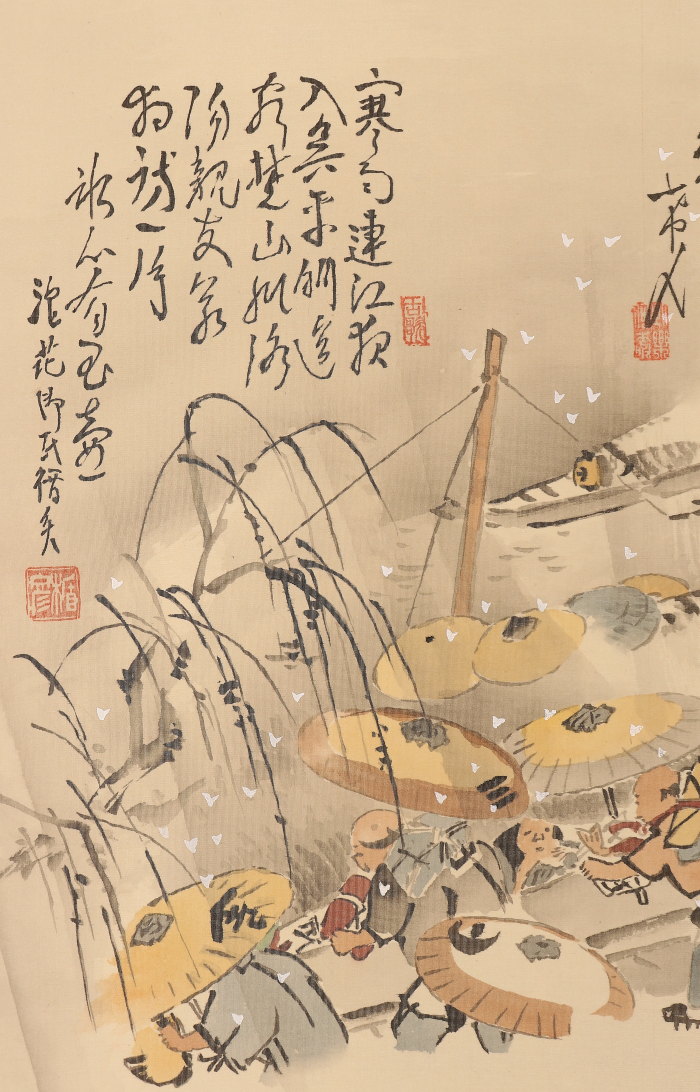 寒雨連江夜
入呉平明送
客楚山孤洛
陽親友若
相問一片
氷心在玉壺
浪花御民楷彦
楷彦